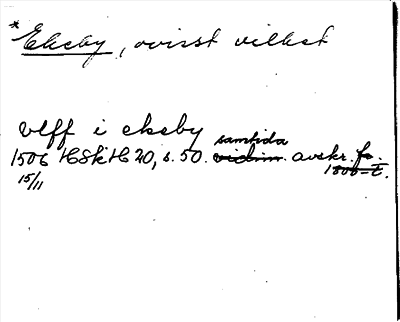 *Ekeby, ovisst vilket
Vlff i ekeby
samtida
1506 HSkH 20, s. 50. vidim. avskr. fr.
15/11 1500-t.